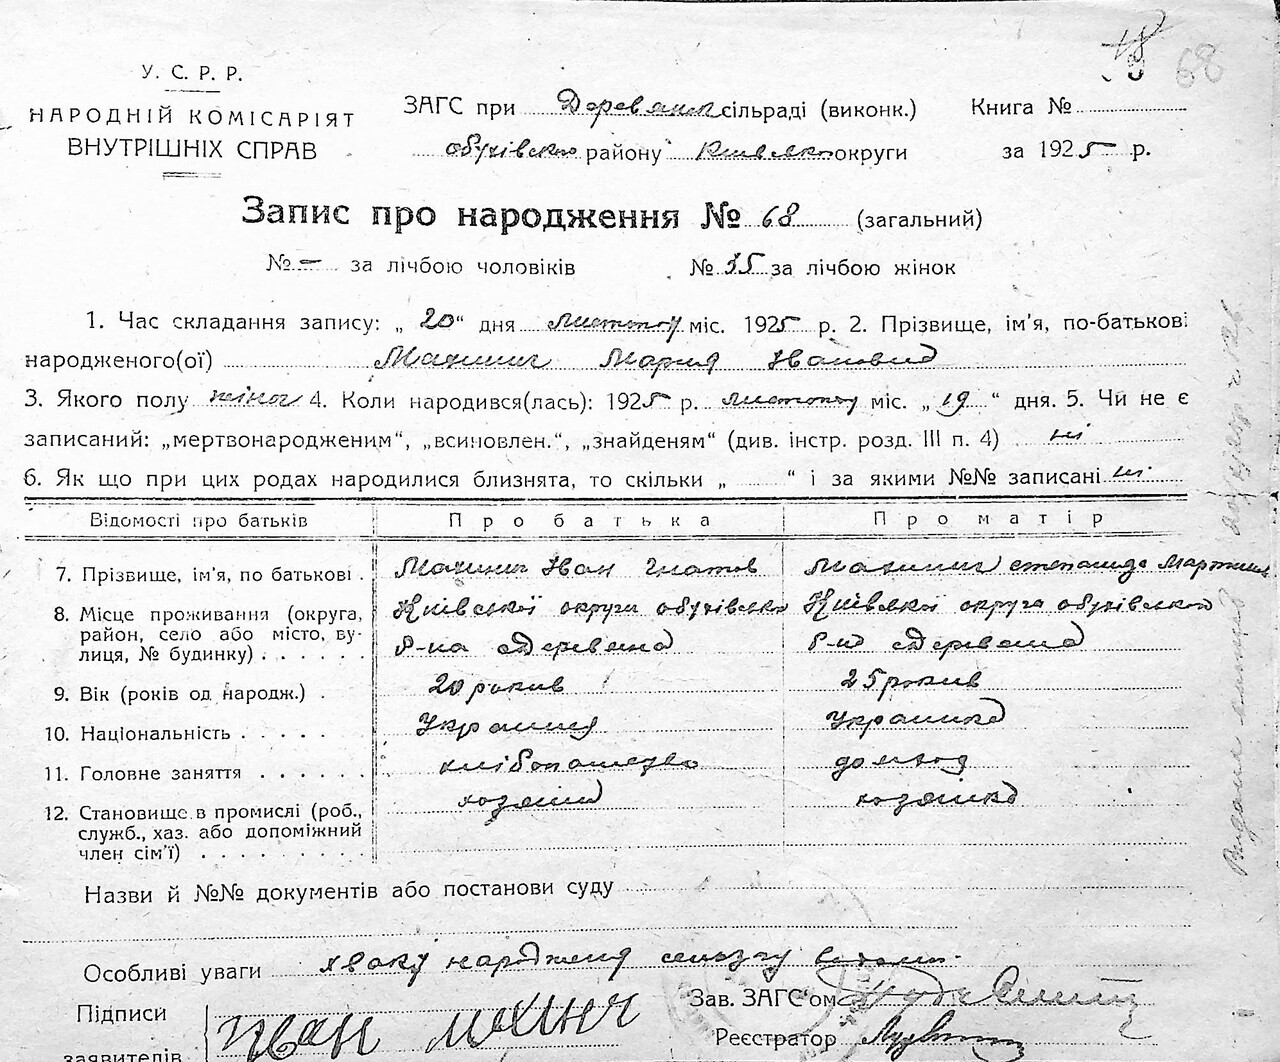 68
У. С. Р. Р.
НАРОДНІЙ КОМІСАРІЯТ
ВНУТРІШНІХ СПРАВ
ЗАГС при Деревянск сільраді (виконк.) Книга №
обухівсько району Київсько округи за 1925 р.
Запис про народження № 68 (загальний)
№ — за лічбою чоловіків № 35 за лічбою жінок
1. Час складання запису: „20“ дня лютого міс. 1925 р. 2. Прізвище, ім'я, по-батькові
народженого(ої) Махинич Мария Ивановна
3. Якого полу жіноч 4. Коли народився(лась): 1925 р. лютого міс. „19“ дня. 5. Чи не є
записаний: „мертвонародженим“, „всиновлен.“, „знайденям“ (див. інстр. розд. III п. 4) ні
6. Як що при цих родах народилися близнята, то скільки „ “ і за якими №№ записані ні
Відомості про батьків Про батька Про матір
7. Прізвище, ім'я, по батькові . Махинич Иван Гнатов Махинич Степанида Мартинов
8. Місце проживання (округа, Київської округи обухівсько Київської округи обухівського
район, село або місто, ву- р-на Деревяна р-н Деревяна
лиця, № будинку) . . . . . .
9. Вік (років од народж.) . 20 років 25 років
10. Національність . . . . . Украинец Украинка
11. Головне заняття . . . . . . хліборобство домхоз
12. Становище в промислі (роб., хозяин хозяйка
служб., хаз. або допоміжний
член сім'ї) . . . . . . . . .
Назви й №№ документів або постанови суду
Особливі уваги
Підписи Зав. ЗАГС'ом
заявителів Иван Махинич Реєстратор